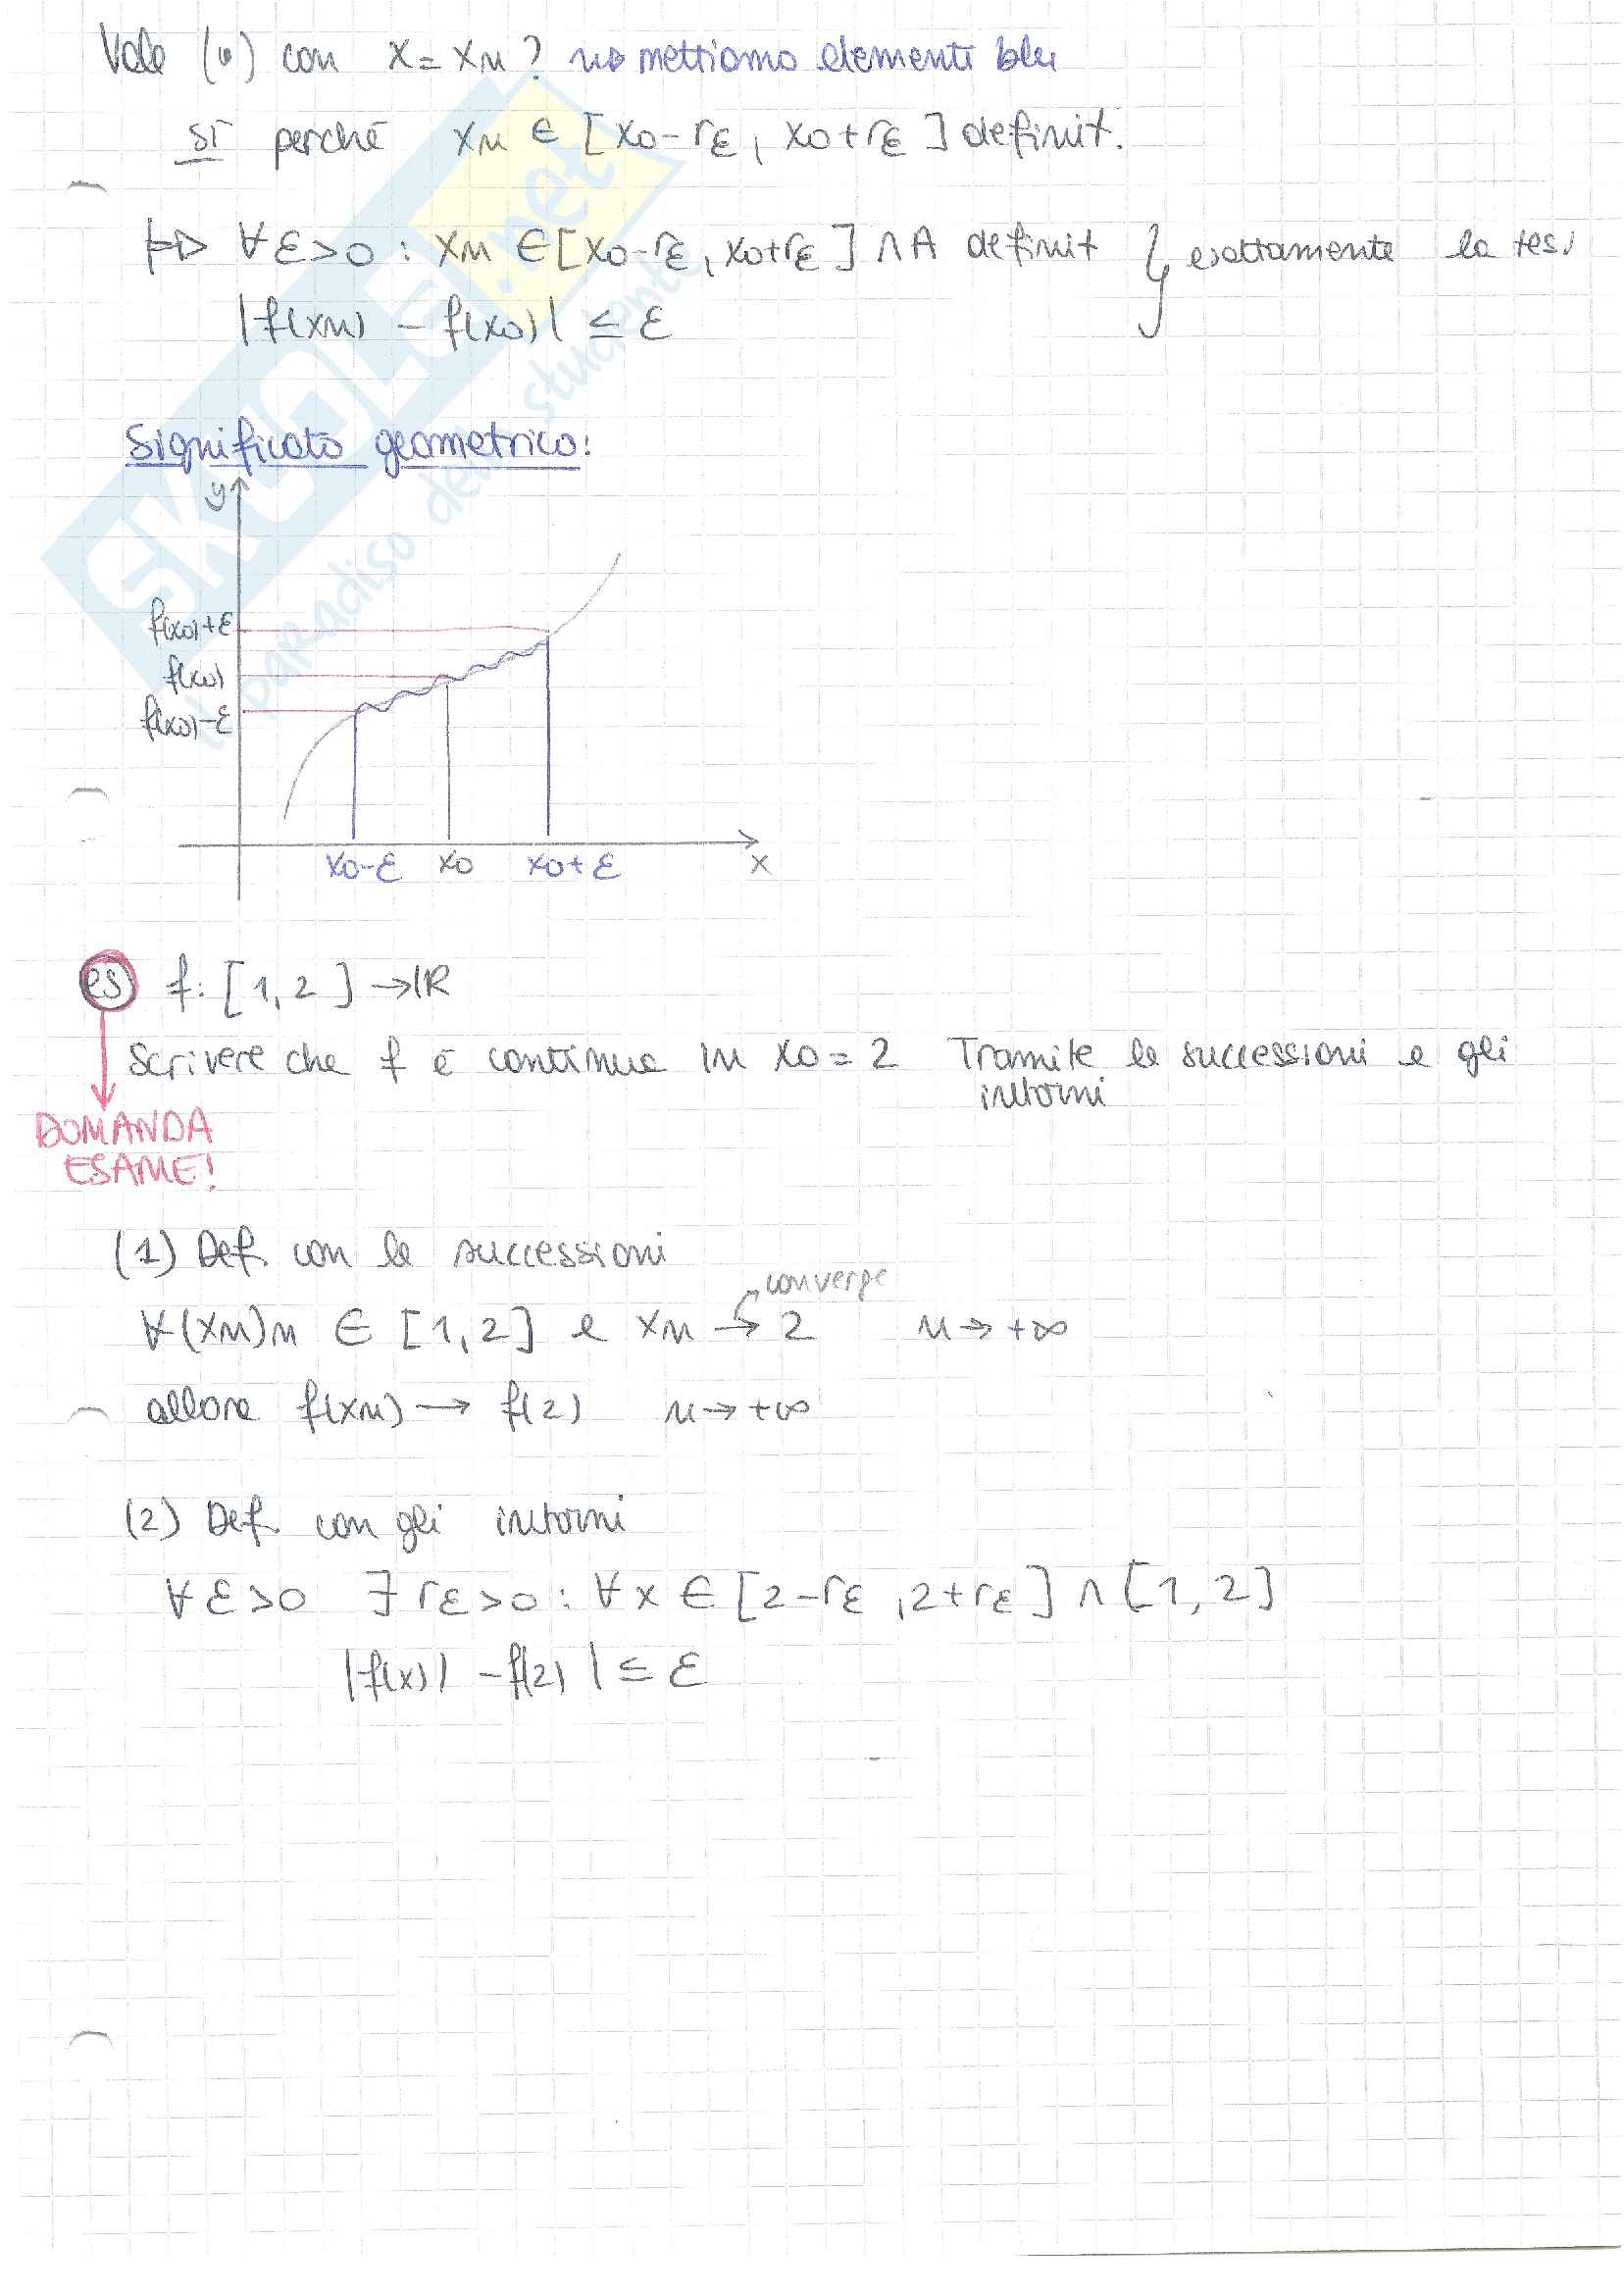 Vale (•) con x = xn? mettiamo elementi blu
sì perché xn ∈ [x0-rε, x0+rε] definit.
⊨▷ ∀ε>0 : xn ∈ [x0-rε, x0+rε] ∩ A definit } esattamente la tesi
|f(xn) - f(x0)| ≤ ε
Significato geometrico:
y
f(x0)+ε
f(x0)
f(x0)-ε
x0-ε x0 x0+ε x
SKUOLA.net
il paradiso dello studente
es f: [1,2] → ℝ
Scrivere che f è continua in x0 = 2 Tramite le successioni e gli
intorni
DOMANDA
ESAME!
(1) Def. con le successioni
converge
∀(xn)n ∈ [1,2] e xn → 2 n → +∞
allora f(xn) → f(2) n → +∞
(2) Def. con gli intorni
∀ε>0 ∃ rε>0 : ∀x ∈ [2-rε, 2+rε] ∩ [1,2]
|f(x)| - f(2)| ≤ ε